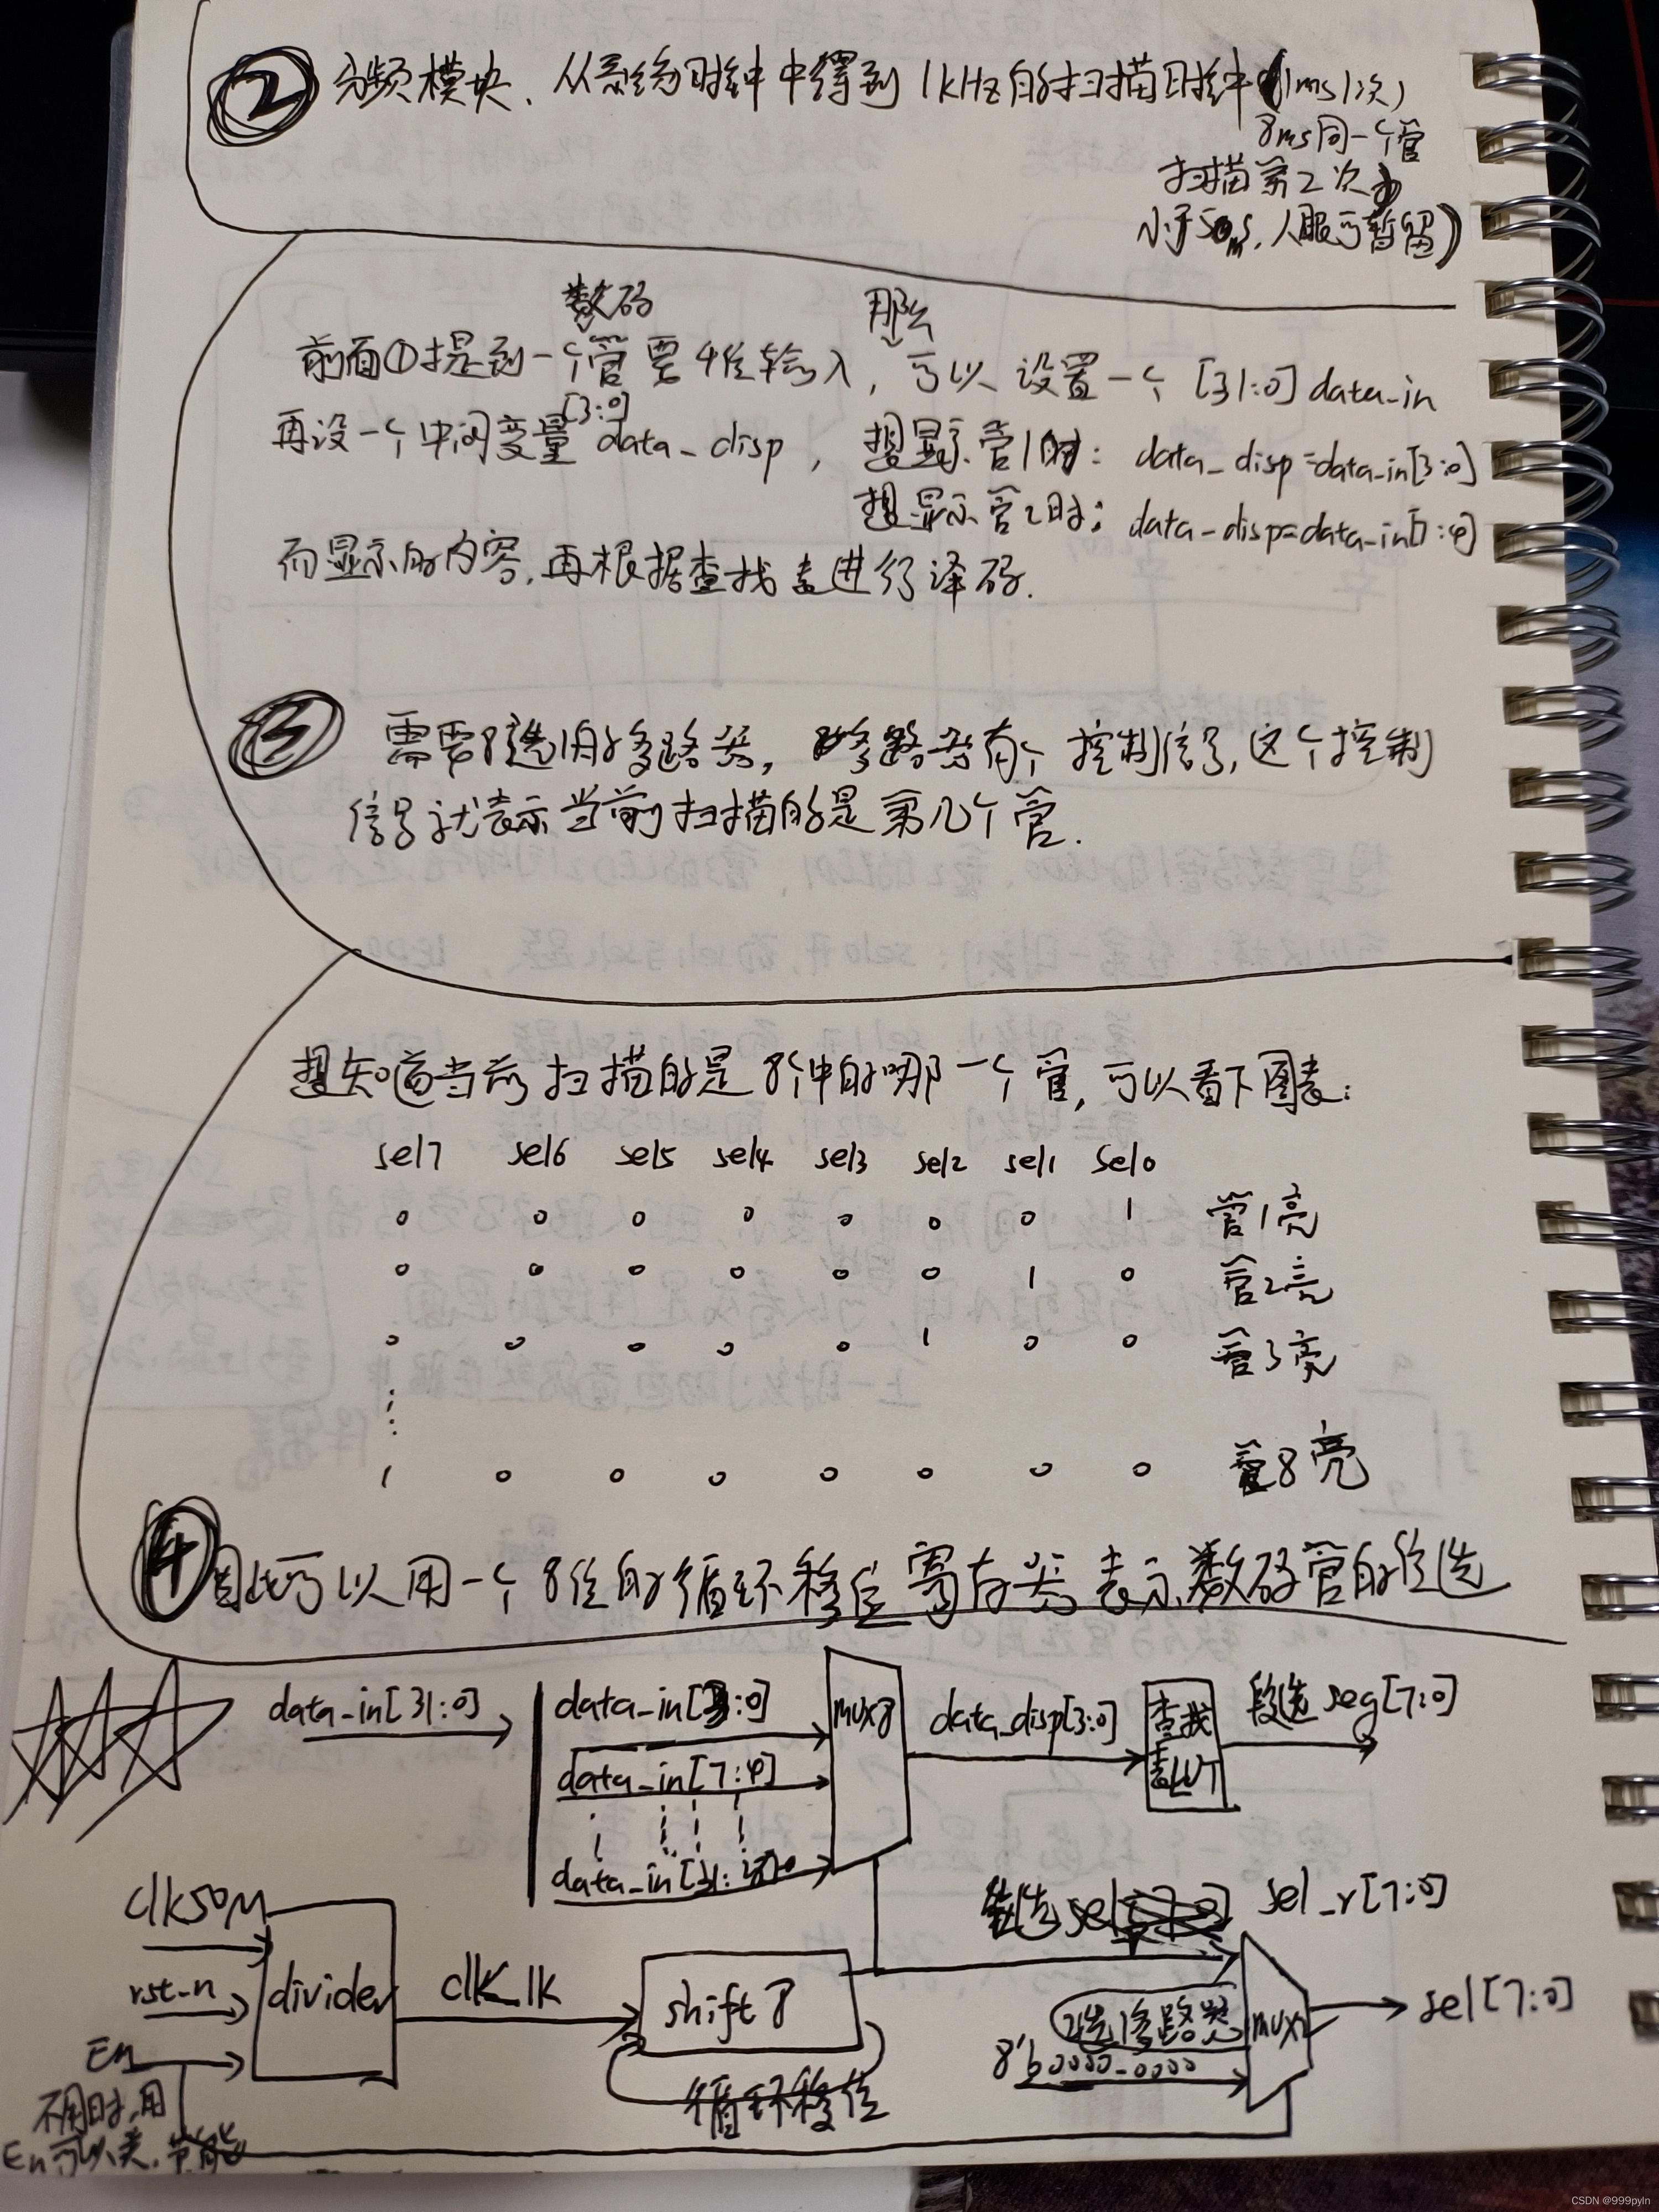 ② 分频模块、从系统时钟中得到1kHz的扫描时钟(1ms1次)
8ms同一个管
扫描第2次
小于50ms,人眼可暂留)
数码 那么
前面①提到一个管需4位输入,可以设置一个[31:0]data_in
[3:0]
再设一个中间变量data_disp,想显示管1时:data_disp=data_in[3:0]
想显示管2时:data-disp=data_in[7:4]
而显示的内容,再根据查找表进行译码.
③ 需要8选1的多路器,多路器有个控制信号,这个控制
信号就表示当前扫描的是第几个管.
想知道当前扫描的是8个中的哪一个管,可以看下图表:
sel7 sel6 sel5 sel4 sel3 sel2 sel1 sel0
0 0 0 0 0 0 0 1 管1亮
0 0 0 0 0 0 1 0 管2亮
0 0 0 0 0 1 0 0 管3亮
1 0 0 0 0 0 0 0 管8亮
④因此可以用一个8位的循环移位寄存器表示数码管的位选
data_in[31:0] data_in[3:0] mux8 data_disp[3:0] 查找表LUT 段选seg[7:0]
data_in[7:4]
data_in[31:28]
clk50M
sel sel_r[7:0]
rst_n divider clk_1k shift8 2选1多路器 mux2 sel[7:0]
En 8'b0000_0000
循环移位
不用时,用
En可以关.节能
CSDN @999pyln